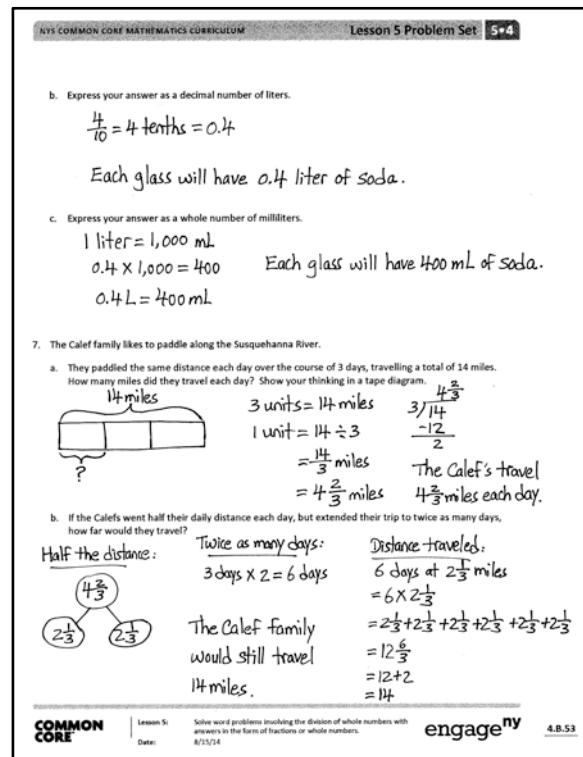 NYS COMMON CORE MATHEMATICS CURRICULUM Lesson 5 Problem Set 5•4
b. Express your answer as a decimal number of liters.
4/10 = 4 tenths = 0.4
Each glass will have 0.4 liter of soda.
c. Express your answer as a whole number of milliliters.
1 liter = 1,000 mL
0.4 x 1,000 = 400
0.4 L = 400 mL
Each glass will have 400 mL of soda.
7. The Calef family likes to paddle along the Susquehanna River.
a. They paddled the same distance each day over the course of 3 days, travelling a total of 14 miles.
How many miles did they travel each day? Show your thinking in a tape diagram.
14 miles
?
3 units = 14 miles
1 unit = 14 ÷ 3
= 14/3 miles
= 4 2/3 miles
4 2/3
3/14
-12
2
The Calef's travel
4 2/3 miles each day.
b. If the Calefs went half their daily distance each day, but extended their trip to twice as many days,
how far would they travel?
Half the distance:
4 2/3
2 1/3 2 1/3
Twice as many days:
3 days x 2 = 6 days
The Calef family
would still travel
14 miles.
Distance traveled:
6 days at 2 1/3 miles
= 6 x 2 1/3
= 2 1/3 + 2 1/3 + 2 1/3 + 2 1/3 + 2 1/3 + 2 1/3
= 12 6/3
= 12 + 2
= 14
COMMON
CORE
Lesson 5: Solve word problems involving the division of whole numbers with
answers in the form of fractions or whole numbers.
Date: 8/15/14
engage ny
4.B.53